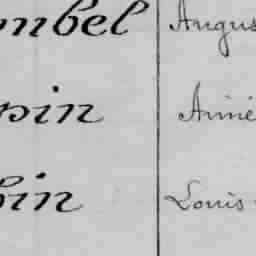 mbel Augus
pin Aimé
bin Louis